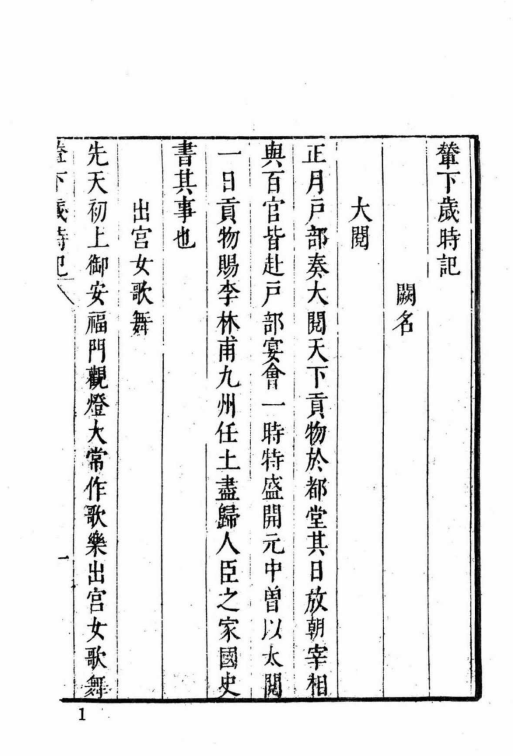 輦下歲時記
闕名
大閱
正月戸部奏大閱天下貢物於都堂其日放朝宰相
與百官皆赴戸部宴會一時特盛開元中曽以太閱
一日貢物賜李林甫九州任土盡歸人臣之家國史
書其事也
出宮女歌舞
先天初上御安福門觀燈大常作歌樂出宮女歌舞
輦下歲時記
一
1